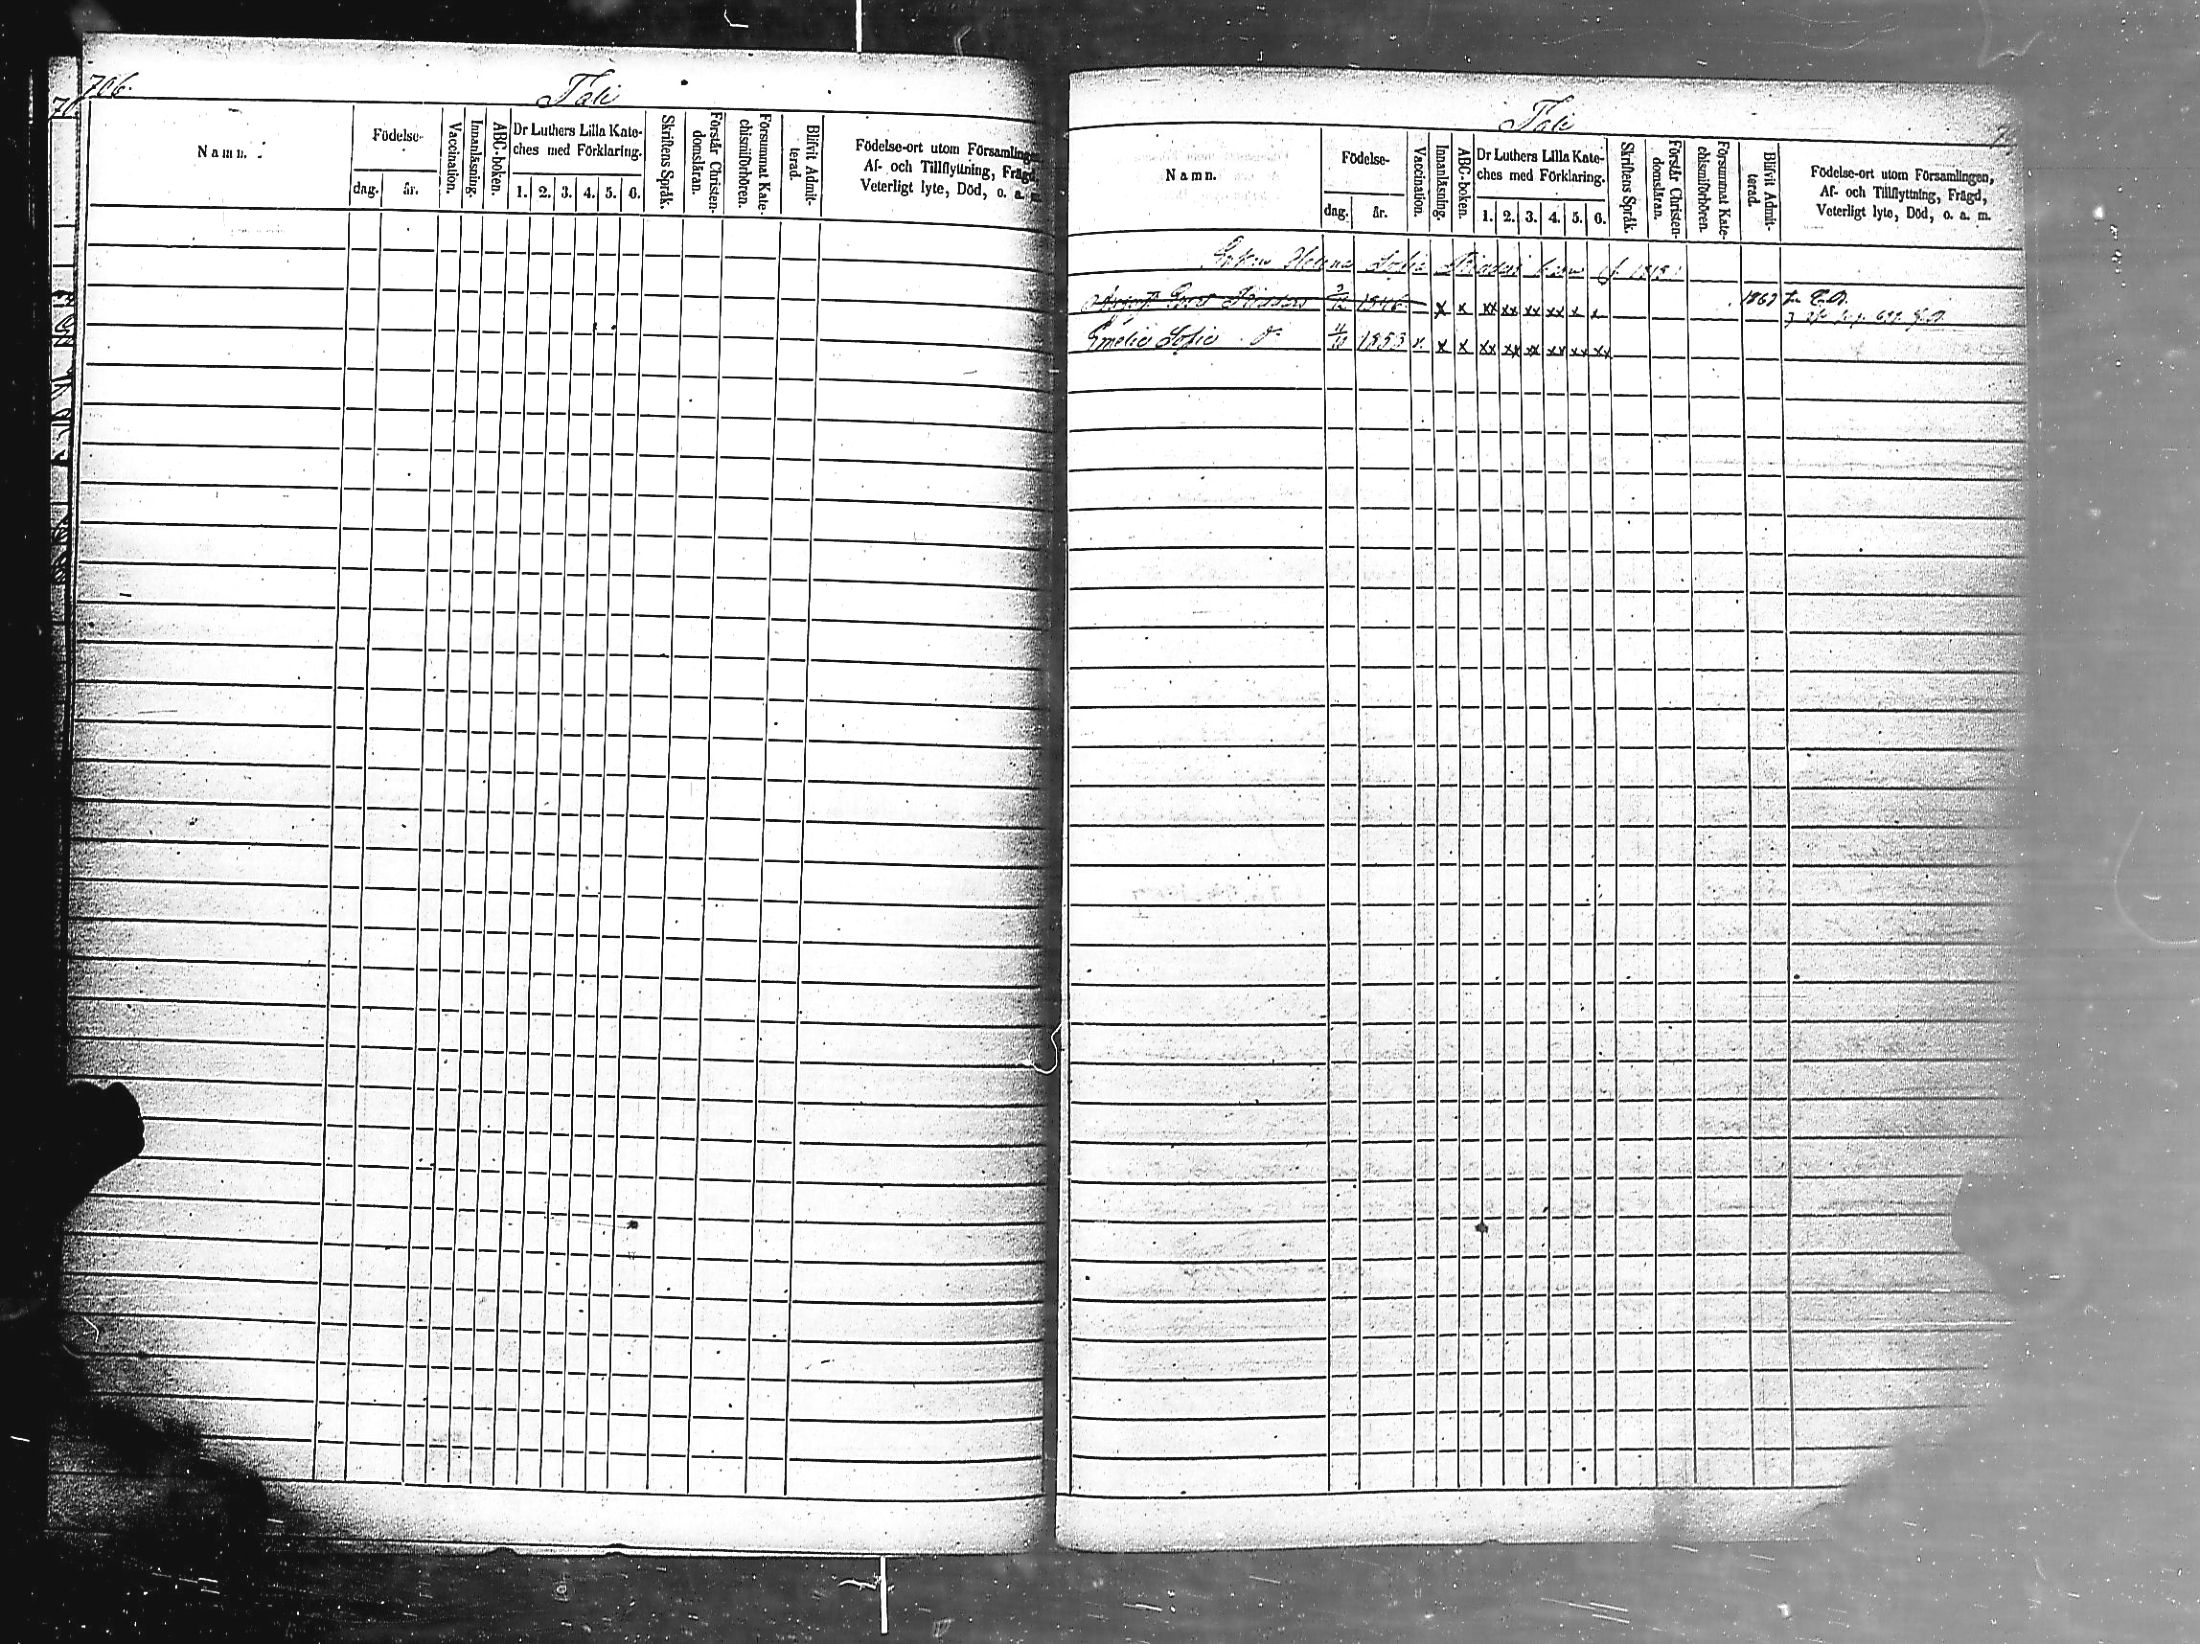 706.
Tali
Namn.
Födelse-
dag.
år.
Vaccination.
Innanläsning.
ABC-boken.
Dr Luthers Lilla Kate-
ches med Förklaring.
1. 2. 3. 4. 5. 6.
Skriftens Språk.
Förstår Christen-
domsläran.
Försummat Kate-
chismiförhören.
Blifvit Admit-
terad.
Födelse-ort utom Församlingen
Af- och Tillflyttning, Frägd,
Veterligt lyte, Död, o. a. m.
Tali
Namn.
Födelse-
dag.
år.
Vaccination.
Innanläsning.
ABC-boken.
Dr Luthers Lilla Kate-
ches med Förklaring.
1. 2. 3. 4. 5. 6.
Skriftens Språk.
Förstår Christen-
domsläran.
Försummat Kate-
chismiförhören.
Blifvit Admit-
terad.
Födelse-ort utom Församlingen,
Af- och Tillflyttning, Frägd,
Veterligt lyte, Död, o. a. m.
Enkan Helena Sofia barn
1846 x x xx xx xx xx x x
Emelie Sofie 1853 v. x x xx xx xx xx xx xx